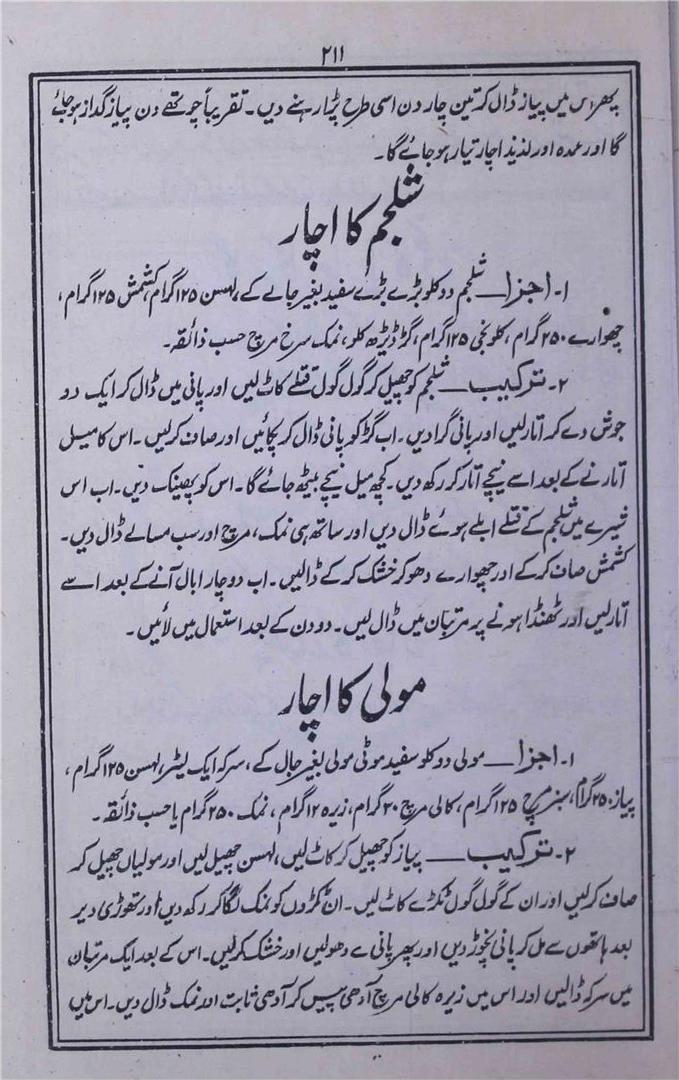 ۲۱۱
پھر اس میں پیاز ڈال کر تین چار دن اسی طرح پڑا رہنے دیں۔ تقریباً چوتھے دن پیاز گداز ہو جائے
گا اور عمدہ اور لذیذ اچار تیار ہو جائے گا۔
شلجم کا اچار
۱۔ اجزا — شلجم دو کلو بڑے بڑے سفید بغیر جالے کے، لہسن ۱۲۵ گرام، کشمش ۱۲۵ گرام،
چھوارے ۲۵۰ گرام، کلونجی ۱۲۵ گرام، گڑ ڈیڑھ کلو، نمک سرخ مرچ حسب ذائقہ۔
۲۔ ترکیب — شلجم کو چھیل کر گول گول قتلے کاٹ لیں اور پانی میں ڈال کر ایک دو
جوش دے کر اتار لیں اور پانی گرا دیں۔ اب گڑ کو پانی ڈال کر پکائیں اور صاف کر لیں۔ اس کا میل
اتارنے کے بعد اسے نیچے اتار کر رکھ دیں۔ کچھ میل نیچے بیٹھ جائے گا۔ اس کو پھینک دیں۔ اب اس
شیرے میں شلجم کے قتلے ابلے ہوئے ڈال دیں اور ساتھ ہی نمک، مرچ اور سب مسالے ڈال دیں۔
کشمش صاف کر کے اور چھوارے دھو کر خشک کر کے ڈالیں۔ اب دو چار ابال آنے کے بعد اسے
اتار لیں اور ٹھنڈا ہونے پر مرتبان میں ڈال لیں۔ دو دن کے بعد استعمال میں لائیں۔
مولی کا اچار
۱۔ اجزا — مولی دو کلو سفید موٹی موٹی بغیر جال کے، سرکہ ایک لیٹر، لہسن ۱۲۵ گرام،
پیاز ۲۵۰ گرام، سبز مرچ ۱۲۵ گرام، کالی مرچ ۲۰ گرام، زیرہ ۱۲ گرام، نمک ۲۵۰ گرام یا حسب ذائقہ۔
۲۔ ترکیب — پیاز کو چھیل کر کاٹ لیں، لہسن چھیل لیں اور مولیاں چھیل کر
صاف کر لیں اور ان کے گول گول ٹکڑے کاٹ لیں۔ ان ٹکڑوں کو نمک لگا کر رکھ دیں اور تھوڑی دیر
بعد ہاتھوں سے مل کر پانی نچوڑ دیں اور پھر پانی سے دھو لیں اور خشک کر لیں۔ اس کے بعد ایک مرتبان
میں سرکہ ڈالیں اور اس میں زیرہ کالی مرچ آدھی پیس کر آدھی ثابت اور نمک ڈال دیں۔ اس میں